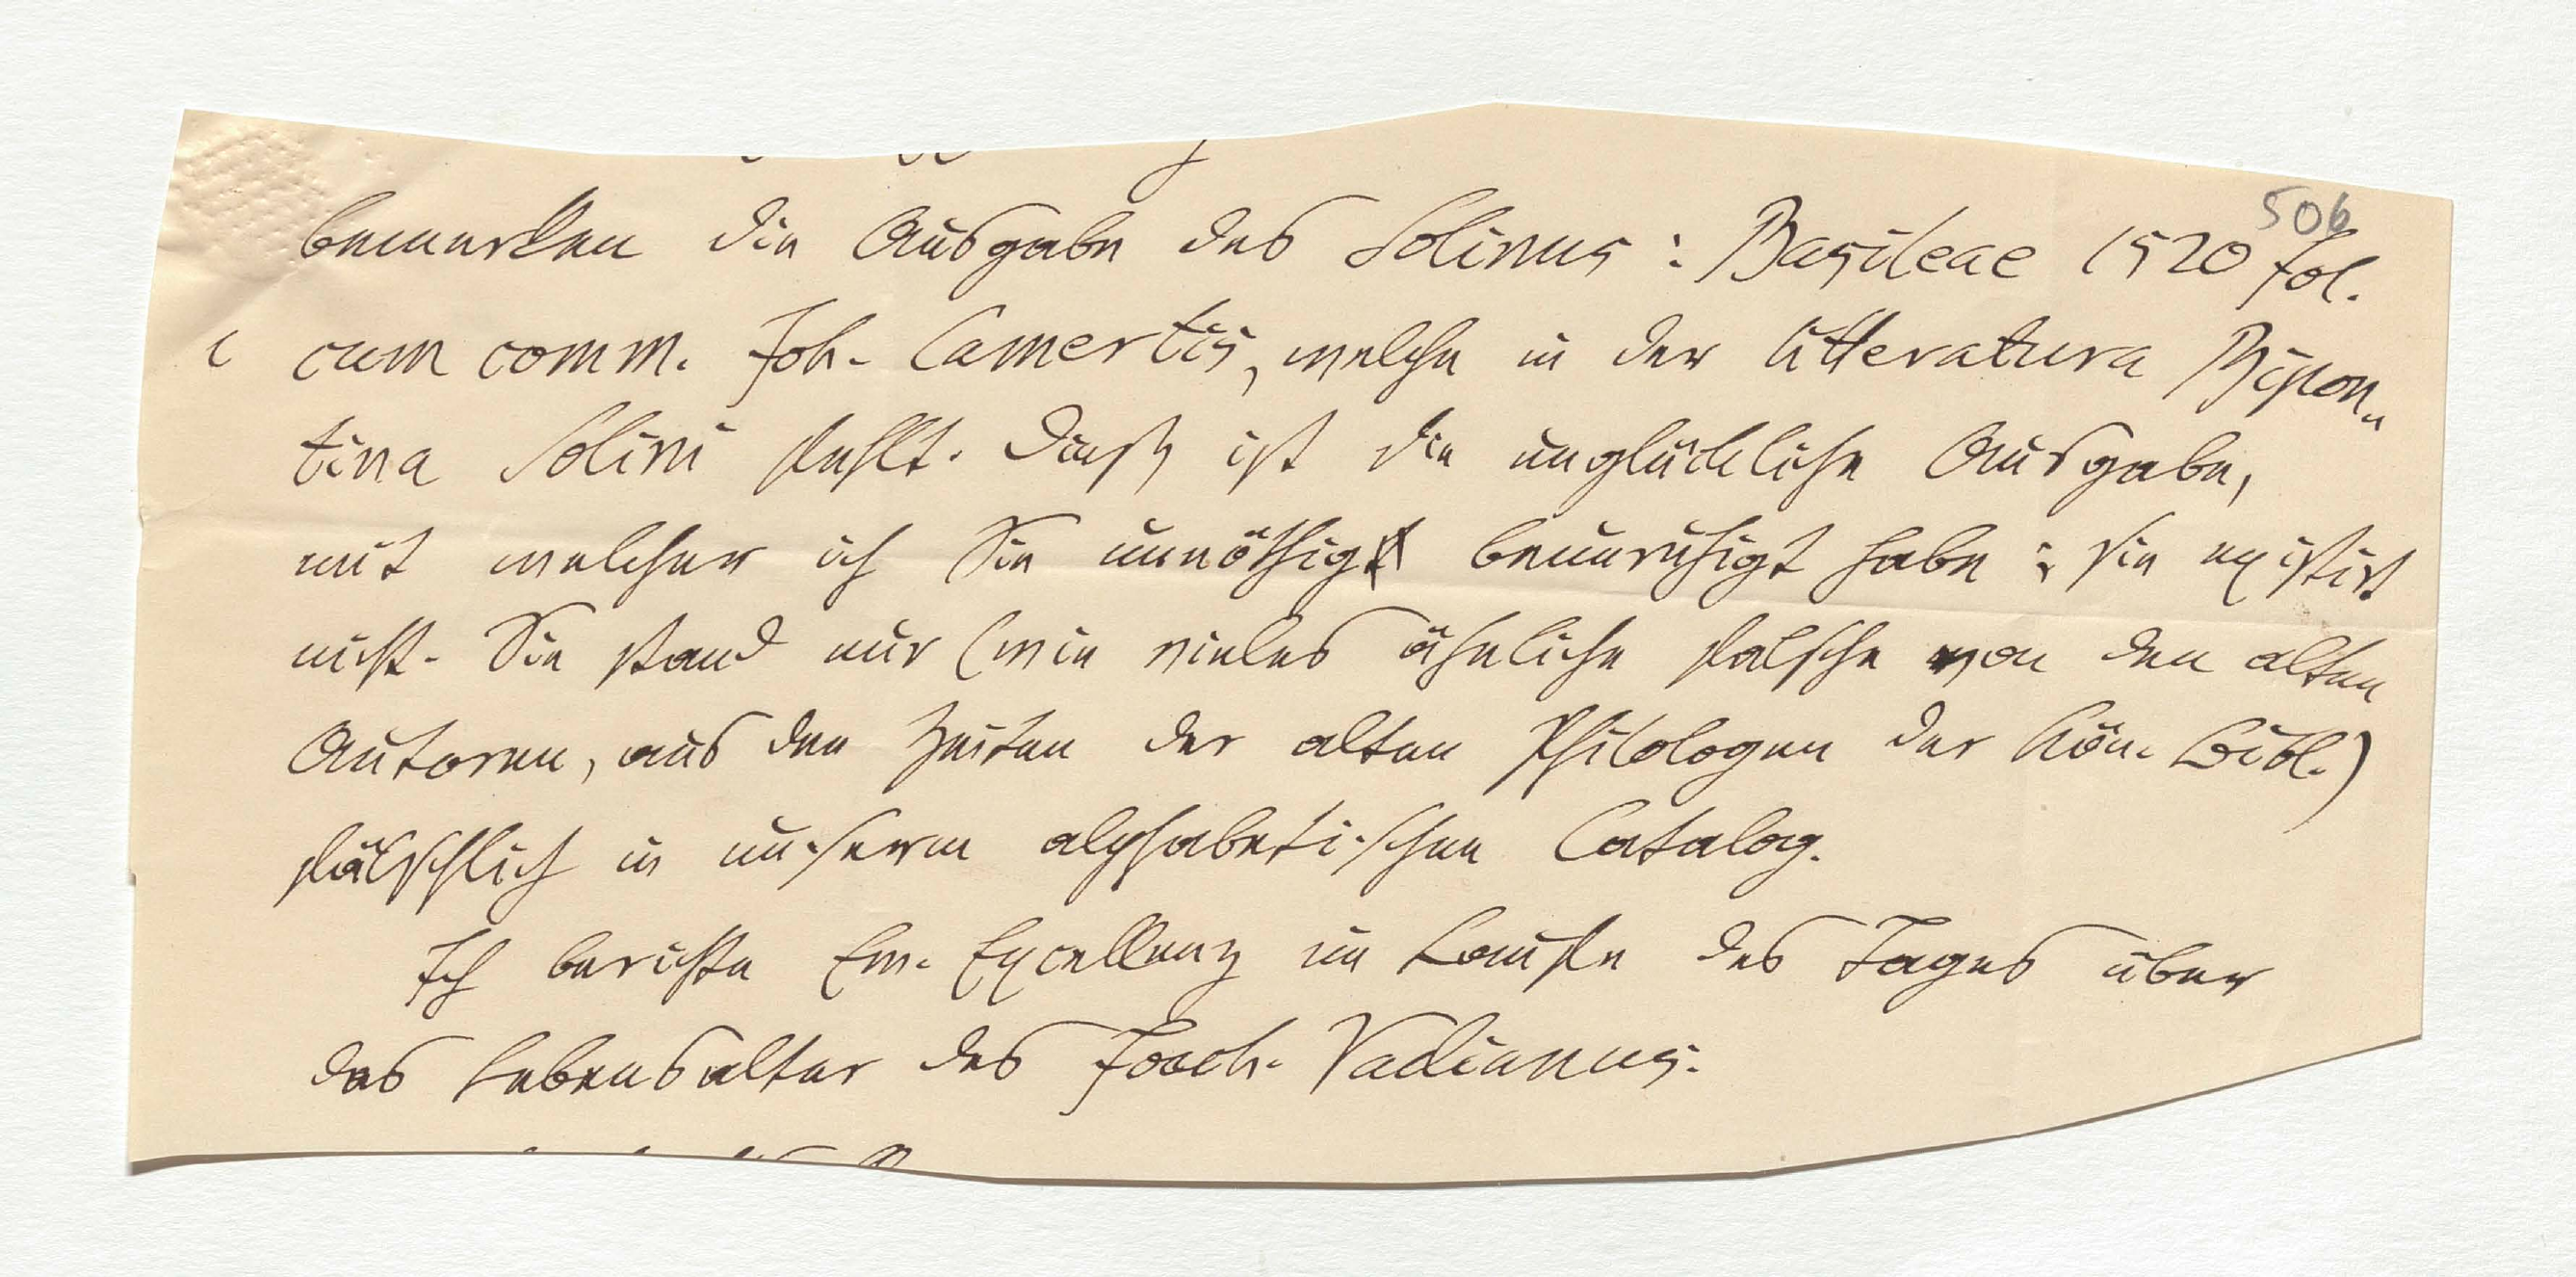 506
bemerken die Ausgabe des Solinus: Basileae 1520 fol.
cum comm. Joh. Camertis, welche in der litteratura Bipon„
tina Solini fehlt. Dieß ist die unglückliche Ausgabe,
mit welcher ich Sie unnöthig beunruhigt habe; sie existirt
nicht. Sie stand nur (wie vieles ähnliche falsche von den alten
Autoren, aus den Zeiten der alten Philologen der Kön. Bibl.)
fälschlich in unserm alphabetischen Catalog.
Ich berichte Ew. Excellenz im Laufe des Tages über
das Lebensalter des Joach. Vadianus.